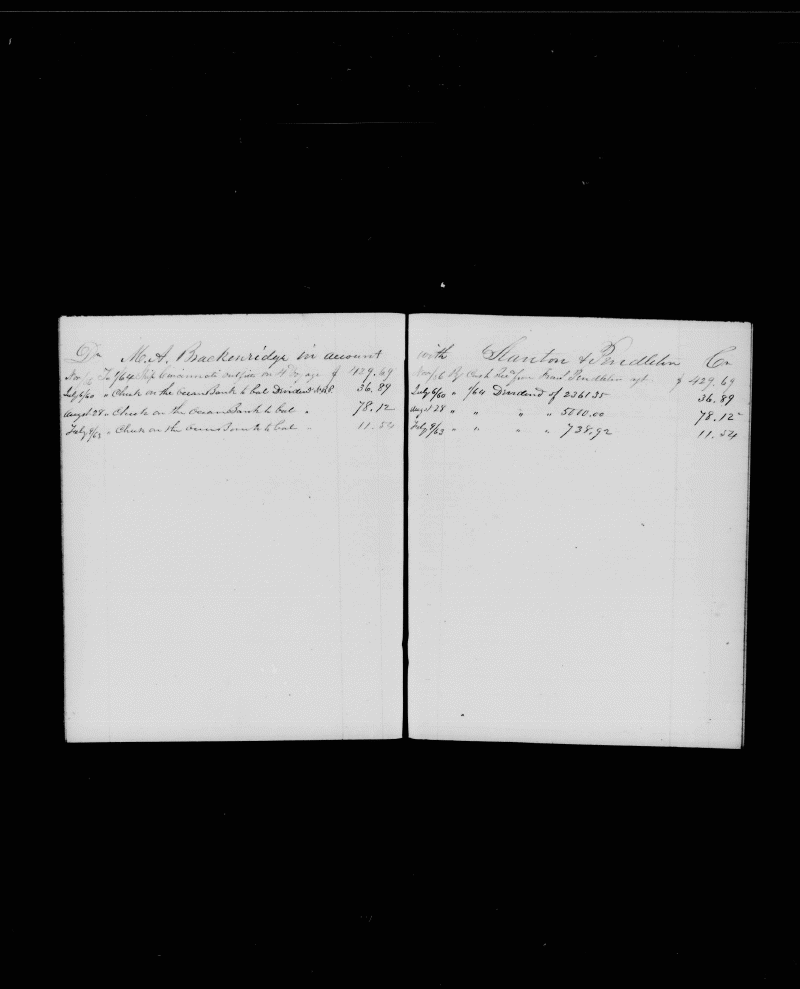 Dr M. A. Brackenridge in account
Nov To 1/64 Ship Cincinnati outfits on voyage $ 429.69
July 6/60 " Check on the Ocean Bank to bal Dividend
36.89
August 28 " Check on the Ocean Bank to bal " 78.12
July 9/63 " Check on the Ocean Bank to bal " 11.54
with Stanton & Pendleton Cr
Nov By Cash Recd from Pendleton agt $ 429.69
July 6/60 " 1/64 Dividend of 2361.35 36.89
August 28 " " " " 5010.00 78.12
July 9/63 " " " " 738.92 11.54